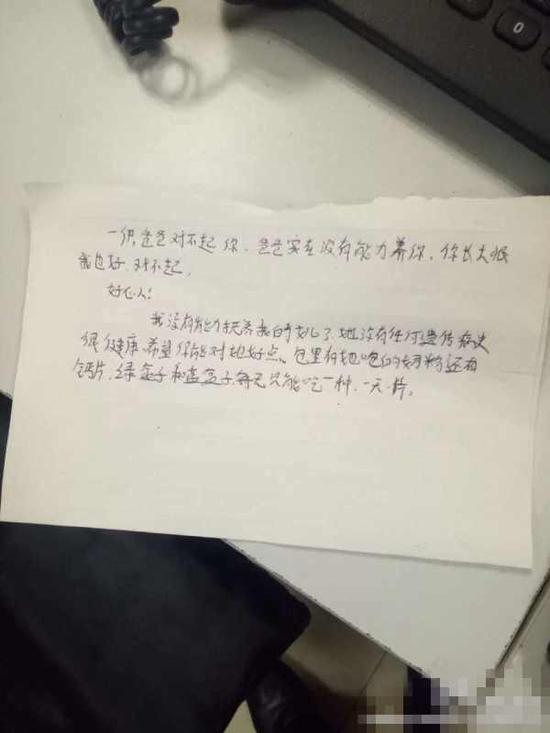 一供,爸爸对不起你,爸爸实在没有能力养你,你长大恨
我也好,对不起.
好心人!
我没有能力抚养我的女儿了,她没有任何遗传病史
很健康,希望你能对她好点。包里有她吃的奶粉还有
钙片,绿盒子和蓝盒子,每天只能吃一种,一天一片。
0